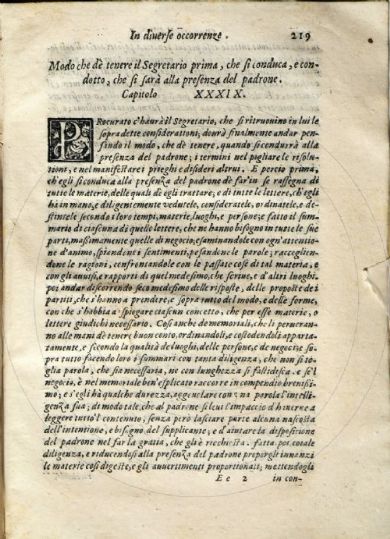 In diuerse occorrenze. 219
Modo che dè tenere il Segretario prima, che si conduca, e con-
dotto, che si sarà alla presenza del padrone.
Capitolo XXXIX.
PRocurato c'haurà il Segretario, che si ritruouino in lui le
sopradette considerationi, dourà finalmente andar pen-
sando il modo, che dè tenere, quando si condurrà alla
presenza del padrone; i termini nel pigliare le risolu-
tioni, e nel manifestare i prieghi e disideri altrui. E percio prima,
ch'egli si conduca alla presenza del padrone dè farsi se rassegna di
tutte le materie, delle quali dè egli trattare; e di tutte le lettere, ch'egli
hà in mano, e diligentemente vedutele, consideratele, ordinatele, e de-
stintele secondo i loro tempi, materie, luoghi, e persone; e fatto il somma-
rio di ciascuna di quelle lettere, che ne hanno bisogno in tutte le sue
parti, massimamente quelle di negocio, esaminandole con ogn'attentio-
ne d'animo, spiandone i sentimenti, pesandone le parole; raccogliendo-
ne le ragioni, confrontandole con le passate cose di tal materia, e
con gli auuisi, e rapporti di quel medesimo, che scriue, e d'altri luoghi,
poi andar discorrendo seco medesimo delle risposte, delle proposte de i
partiti, che s'hanno a prendere, e sopra tutto del modo, e delle forme,
con che s'habbia a spiegare ciascun concetto, che per esse materie, o
lettere giudichi necessario. Cosi anche de memoriali, che li perueran-
no alle mani dè tenere buon conto, ordinandoli, e custodendoli apparta-
tamente, e secondo la qualità de luoghi, delle persone, e de negocij so-
pra tutto facendo loro i sommari con tanta diligenza, che non si to-
glia parola, che sia necessaria, ne con lunghezza si fastidisca. e se'l
negocio, è nel memoriale ben'esplicato raccorre in compendio breuissi-
mo; e s'egli hà qualche durezza, ageuolare con una parola l'intelli-
genza sua; di modo tale, che al padrone si leui l'impaccio d'hauerne a
leggere tutto'l contenuto, senza però lasciare parte alcuna nascosta
dell'intentione, e bisogno del supplicante, e d'aiutare la dispositione
del padrone nel far la gratia, che gli è richiesta. fatta poi cotale
diligenza, e riducendosi alla presenza del padrone proporgli innanzi
le materie cosi digeste, e gli auuertimenti proportionati; mettendoghi
Ee 2 in con-